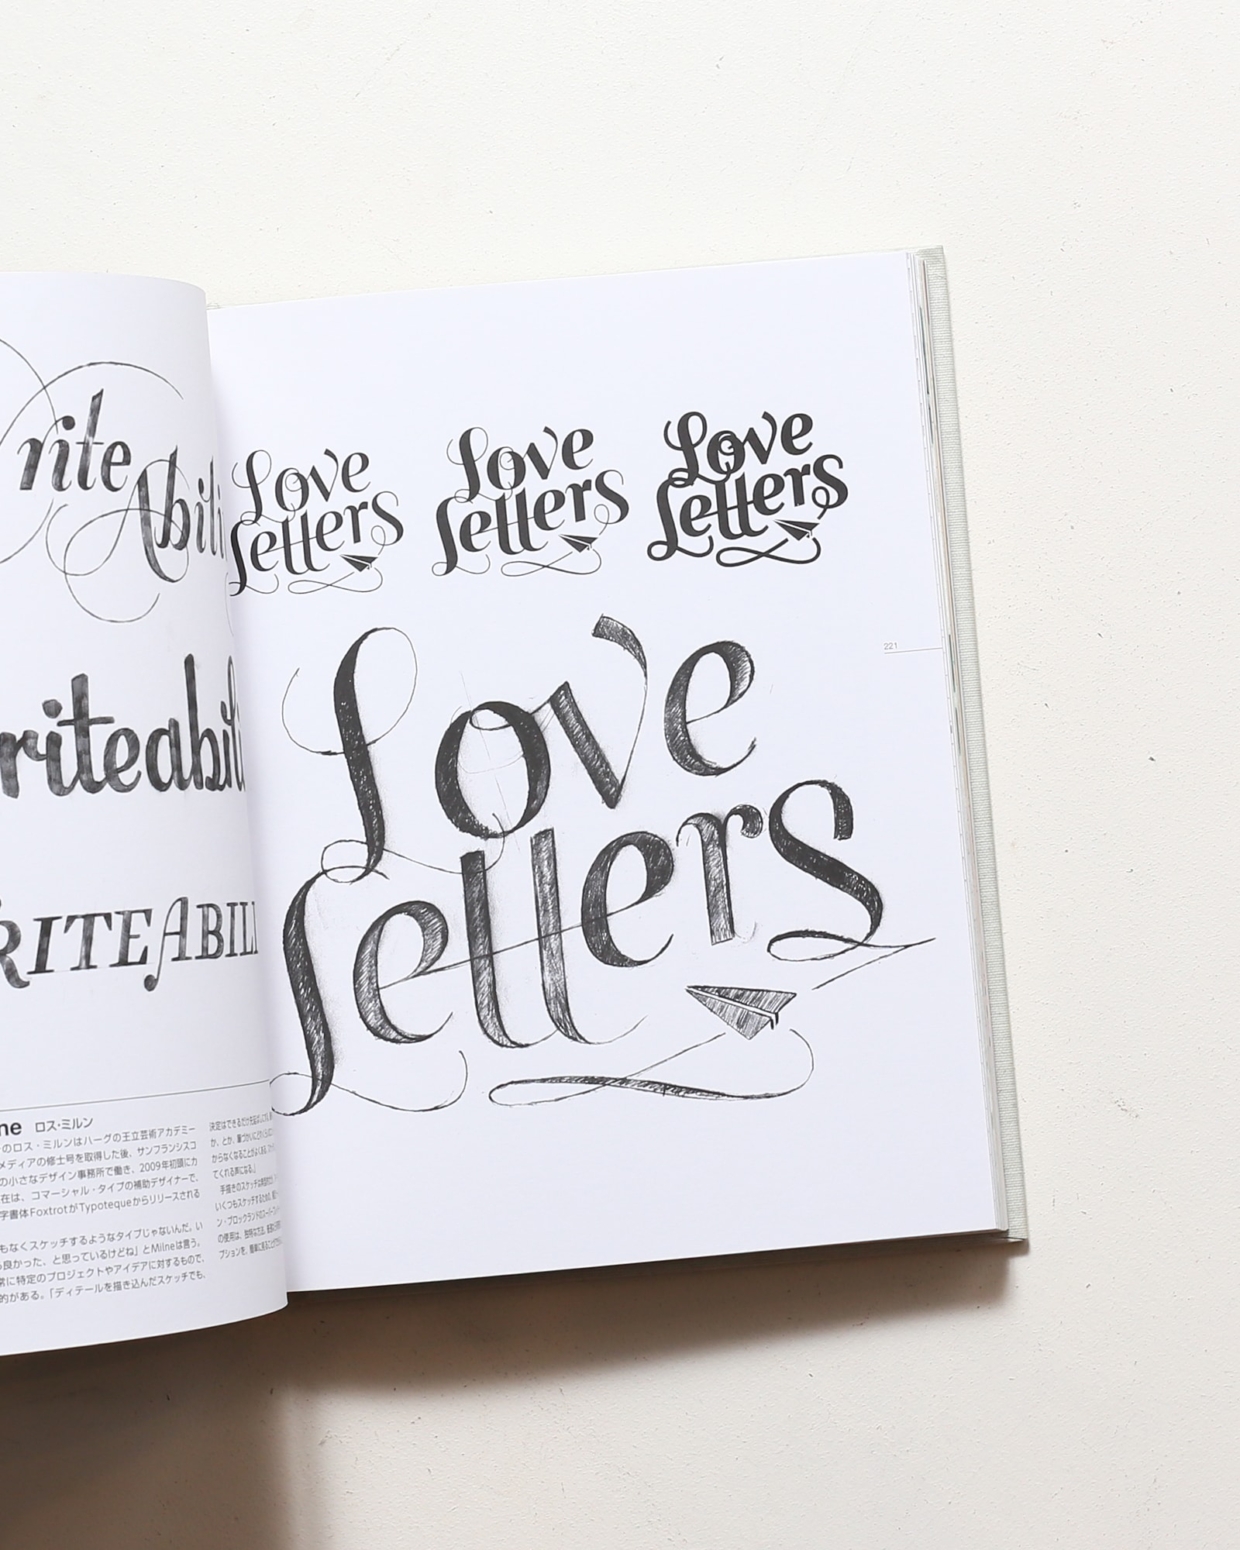 rite
Abili
riteabili
RITEABILI
ne ロス・ミルン
のロス・ミルンはハーグの王立芸術アカデミー
メディアの修士号を取得した後、サンフランシスコ
の小さなデザイン事務所で働き、2009年初頭にカ
在は、コマーシャル・タイプの補助デザイナーで、
字書体FoxtrotがTypotequeからリリースされる
もなくスケッチするようなタイプじゃないんだ。い
良かった、と思っているけどね」とMilneは言う。
常に特定のプロジェクトやアイデアに対するもので、
的がある。「ディテールを描き込んだスケッチでも、
からなくなることがよくある。
てくれる声になる。」
手描きのスケッチは
いくつもスケッチするため
ン・ブロックランドの
の使用は、
プションを、簡単に
Love
Letters
Love
Letters
Love
Letters
221
Love
Letters